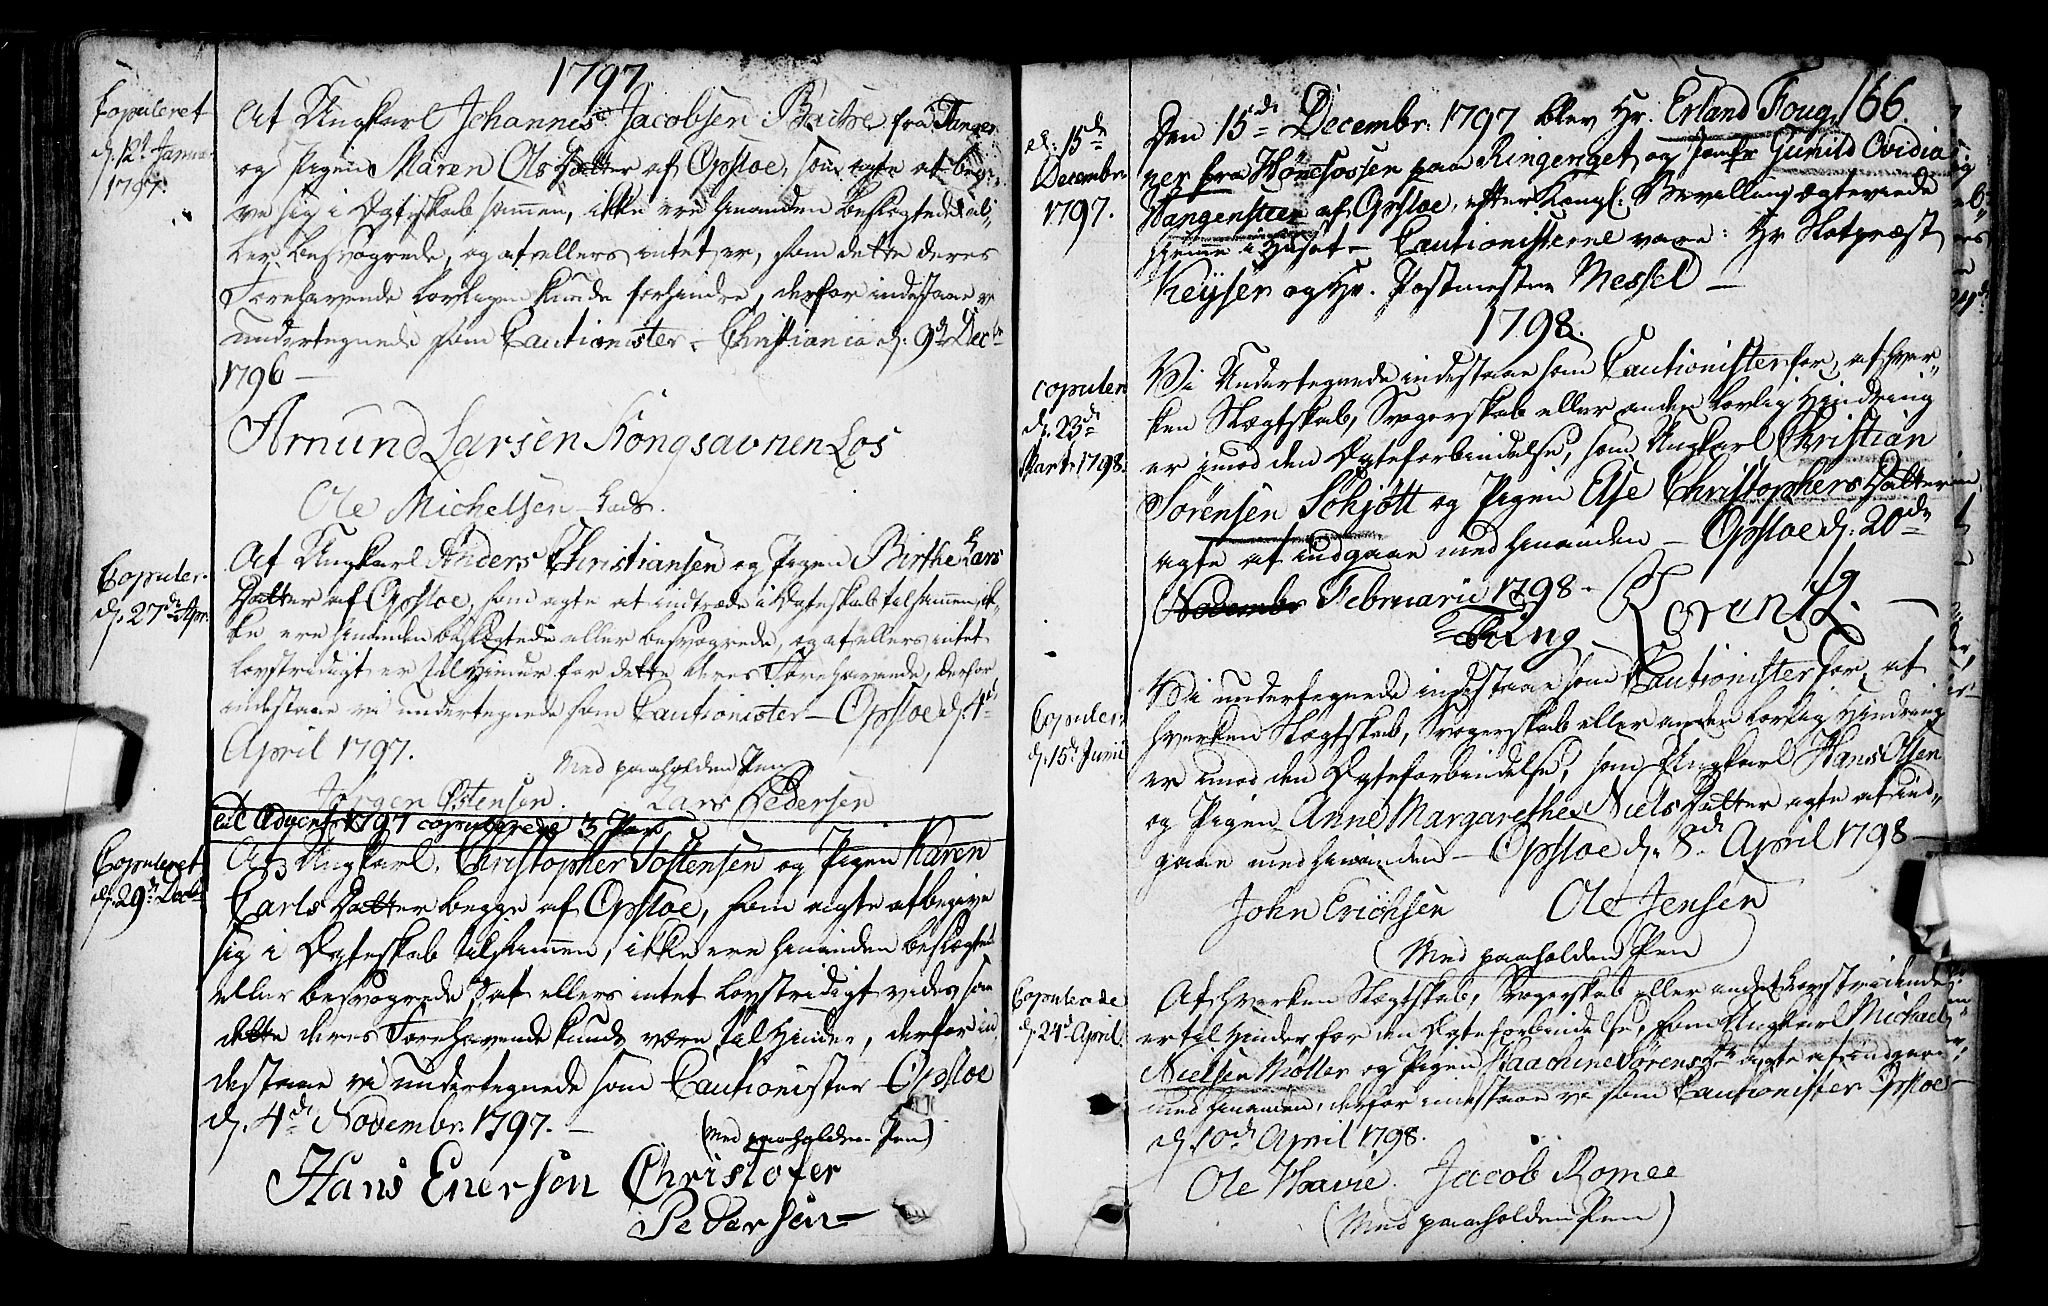 1797
Copuleret
d. 12t Janua
1797.
At Ungkarl Johannes Jacobsen fra Tanger
og Pigen Maren Ols Datter af Opsloe, som agte at begi-
ve sig i Ægteskab sammen, ikke ere hinanden beslægtede el-
ler besvogrede, og at ellers intet er, som dette deres
Forehavende lovligen kunde forhindre, derfor indestaae vi
undertegnede som Cautionister. Christiania d. 9de Decbr
1796 —
Amund Larsen Kongsavnen Los
Ole Michelsen Lods.
Copuler.
d. 27de Apr.
At Ungkarl Anders Christiansen og Pigen Birthe Lars
Datter af Opsloe, som agte at indtræde i Ægteskab tilsammen, ik-
ke ere hinanden beslægtede eller besvogrede, og at ellers intet
lovstridigt er til Hinder for dette deres Forehavende, derfor
indestaae vi undertegnede som Cautionister — Opsloe d. 4de
April 1797.
Med paaholden Pen
Jørgen Østensen. Lars Pedersen
til Advent 1797 copulerede 3 Par
Copuleret
d. 29de Decb
At Ungkarl Christopher Tostensen og Pigen Karen
Carls Datter begge af Opsloe, som agte at begive
sig i Ægteskab tilsammen, ikke ere hinanden beslægtede
eller besvogrede, at ellers intet lovstridigt vides, som
dette deres Forehavende kunde være til Hinder, derfor in-
destaae vi undertegnede som Cautionister Opsloe
d. 4de Novembr. 1797. —
(Med paaholden Pen)
Hans Enersen Christofer
Pedersen —
166.
d. 15de
Decembr.
1797.
Den 15de Decembr. 1797 blev Hr. Erland Foug-
ner fra Hønefossen paa Ringeriget og Jomfr Gunild Ovidia
Wangensteen af Opsloe, efter Kongl. Bevilling ægteviede
hjemme i Huset — Cautionisterne vare: Hr Slotspræst
Keyser og Hr. Postmester Wessel —
1798.
copuler
d. 23de
Mart. 1798.
Vi Undertegnede indestaae som Cautionister for, at hver-
ken Slægtskab, Svogerskab eller anden lovlig Hindring
er imod den Ægteforbindelse, som Ungkarl Christian
Sørensen Schjøtt og Pigen Else Christophers Datter
agte at indgaae med hinanden — Opsloe d. 20de
Novembr Februarii 1798 — Lorentz —
Ring
Copuler
d. 15de Junii
Vi undertegnede indestaae som Cautionister for, at
hverken Slægtskab, Svogerskab eller anden lovlig Hindring
er imod den Ægteforbindelse, som Ungkarl Hans Olsen
og Pigen Anne Margarethe Niels Datter agte at ind-
gaae med hinanden — Opsloe d. 8de April 1798 —
John Erichsen Ole Jensen
(Med paaholden Pen
Copulerede
d. 24d April.
At hverken Slægtskab, Svogerskab eller andet Lovstridende
er til Hinder for den Ægteforbindelse, som Ungkarl Michael
Nielsen Møller og Pigen Sørens Dtr agte at indgaae
med hinanden, derfor indestaae vi som Cautionister Opsloe
d. 10de April 1798.
Ole Haavie. Jacob Romee
(Med paaholden Pen)